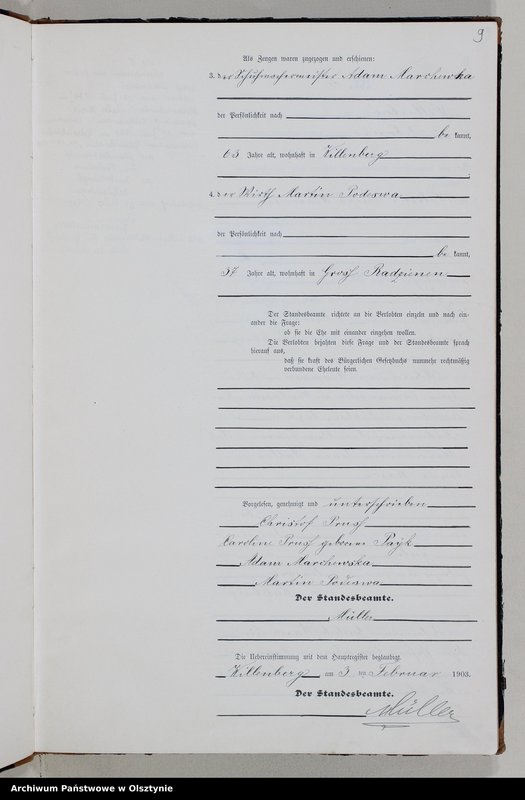 9
Als Zeugen waren zugezogen und erschienen:
3. der Schuhmachermeister Adam Marchewka
der Persönlichkeit nach
be kannt,
63 Jahre alt, wohnhaft in Willenberg
4. der Wirth Martin Podeswa
der Persönlichkeit nach
be kannt,
57 Jahre alt, wohnhaft in Gross Radzienen
Der Standesbeamte richtete an die Verlobten einzeln und nach ein-
ander die Frage:
ob sie die Ehe mit einander eingehen wollen.
Die Verlobten bejahten diese Frage und der Standesbeamte sprach
hierauf aus,
daß sie kraft des Bürgerlichen Gesetzbuchs nunmehr rechtmäßig
verbundene Eheleute seien.
Vorgelesen, genehmigt und unterschrieben
Christof Pruss
Caroline Pruss geborene
Adam Marchewska
Martin Podeswa
Der Standesbeamte.
Müller
Die Uebereinstimmung mit dem Hauptregister beglaubigt.
Willenberg am 3 ten Februar 1903.
Der Standesbeamte.
Müller
Archiwum Państwowe w Olsztynie